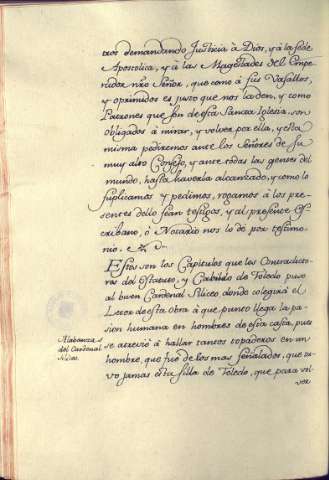 tros demandando Justicia à Dios, y à la sede
Apostolica, y à las Magestades del Empe-
rador nr̃o Señor, que como à sus Vasallos,
y oprimidos es justo que nos la den, y como
Patrones que son de esta Sancta Iglesia, son
obligados à mirar, y volver por ella, y esta
misma pediremos ante los Señores de su
muy alto Consejo, y ante todas las gentes del
mundo, hasta haverla alcanzado, y como lo
suplicamos y pedimos, rogamos à los pre-
sentes dello sean testigos, y al presente Es-
cribano, ò Notario nos lo dè por testimo-
nio.
Estos son los Capitulos que los Contradicto-
res del Estatuto, y Cabildo de Toledo puso
al buen Cardenal Siliceo donde colegirà el
Letor de esta obra à que punto llega la pa-
sion humana en hombres de esta casta, pues
se atreviò à hallar tantos topaderos en un
hombre, que fuè de los mas señalados, que tu-
vo jamas esta silla de Toledo, que para vol-
ver
Alabanzas
del Cardenal
Siliceo.